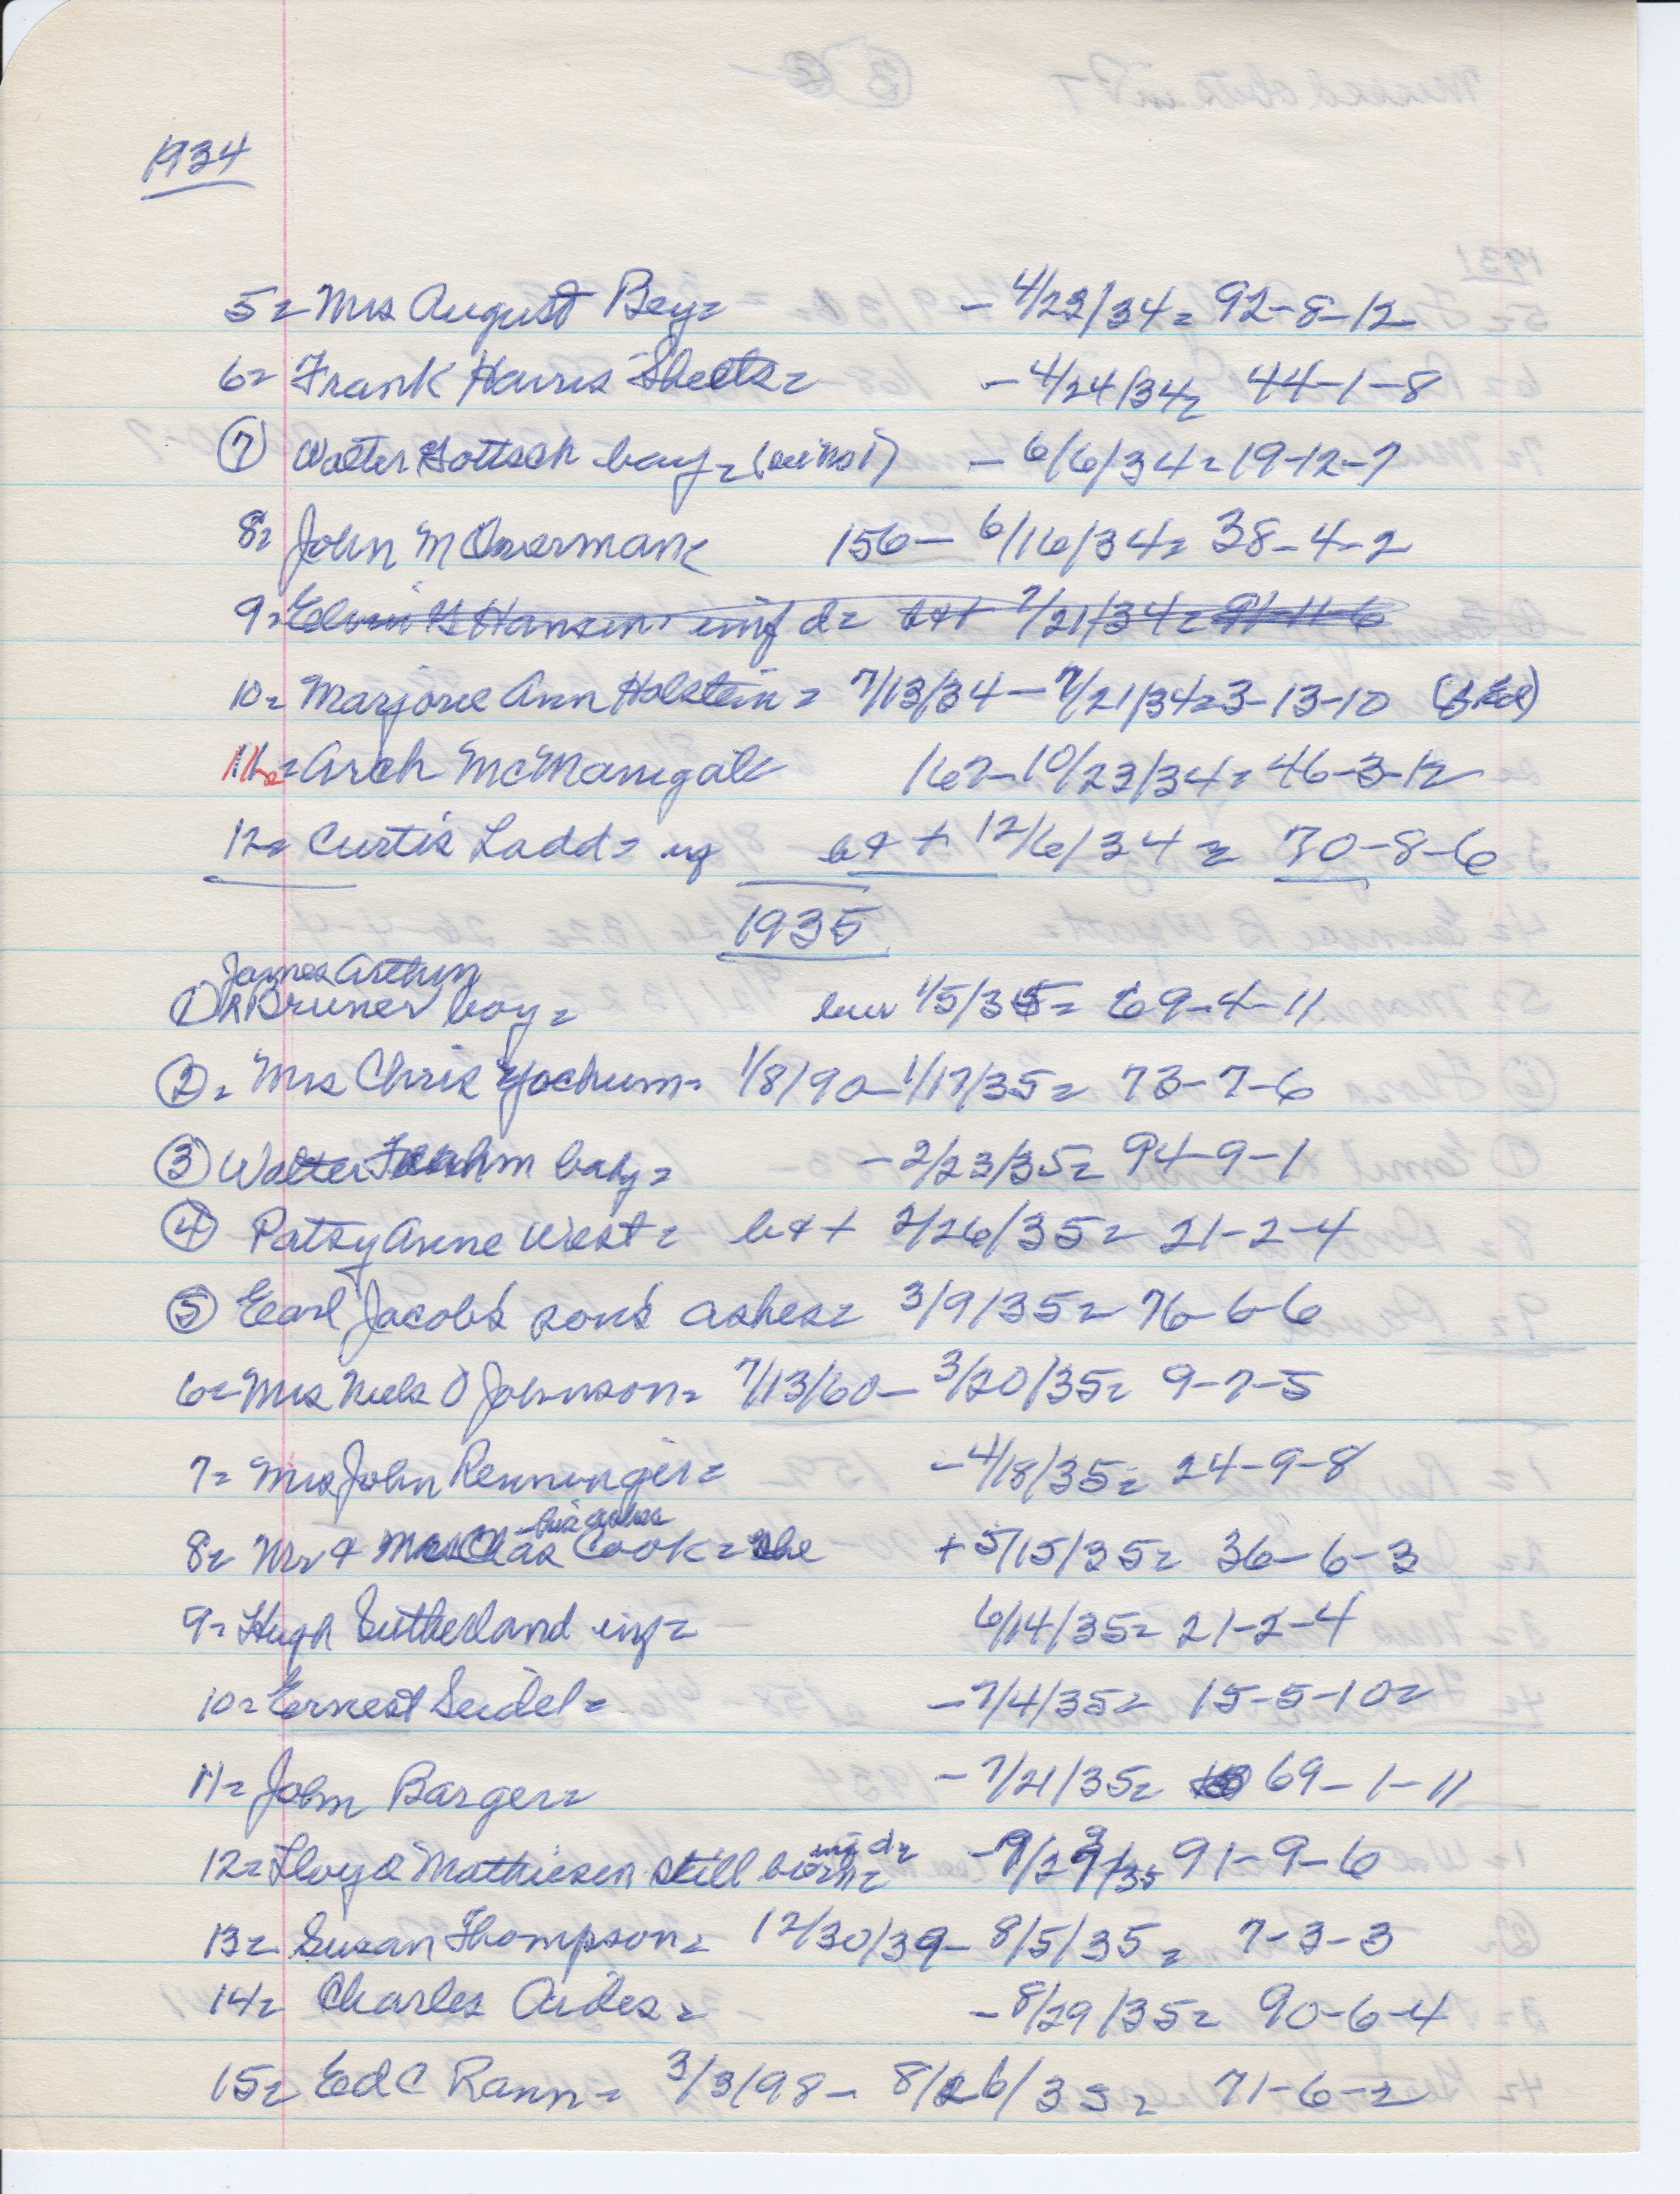 1934
5= Mrs August Bey= - 4/23/34= 92-8-12
6= Frank Harris Sheets= - 4/24/34= 44-1-8
(7) Walter Gottsch bay= (see no 1) - 6/6/34= 19-12-7
8= John M Overman= 156- 6/16/34= 38-4-2
9= Elvin G Hansen inf d= b&+ 7/21/34= 91-11-6
10= Marjorie Ann Holstein= 7/13/34-7/21/34= 3-13-10
11= Arch McManigal= 167-10/23/34= 46-3-12
12= Curtis Ladd= inf b&+ 12/6/34= 70-8-6
1935
James Arthur
(1) R Bruner boy= bur 1/5/35= 69-4-11
(2)= Mrs Chris Yochum= 1/8/90-1/17/35= 73-7-6
(3) Walter Frahm baby= -2/23/35= 94-9-1
(4) Patsy Anne West= b&+ 2/26/35= 21-2-4
(5) Earl Jacobs son's ashes= 3/9/35= 76-6-6
6= Mrs Niels O Johnson= 7/13/60- 3/20/35= 9-7-5
7= Mrs John Renninger= -4/18/35= 24-9-8
-his ashes
8= Mr & Mrs Chas Cook= she +5/15/35= 36-6-3
9= Hugh Sutherland inf= 6/14/35= 21-2-4
10= Ernest Seidel= -7/4/35= 15-5-10=
11= John Barger= -7/21/35= 69-1-11
inf d=
12= Lloyd Mathiesen still born= 91-9-6
13= Susan Thompson= 12/30/39- 8/5/35= 7-3-3
14= Charles Aides= -8/29/35= 90-6-4
15= Ed C Rann= 3/3/98- 8/26/35= 71-6-2